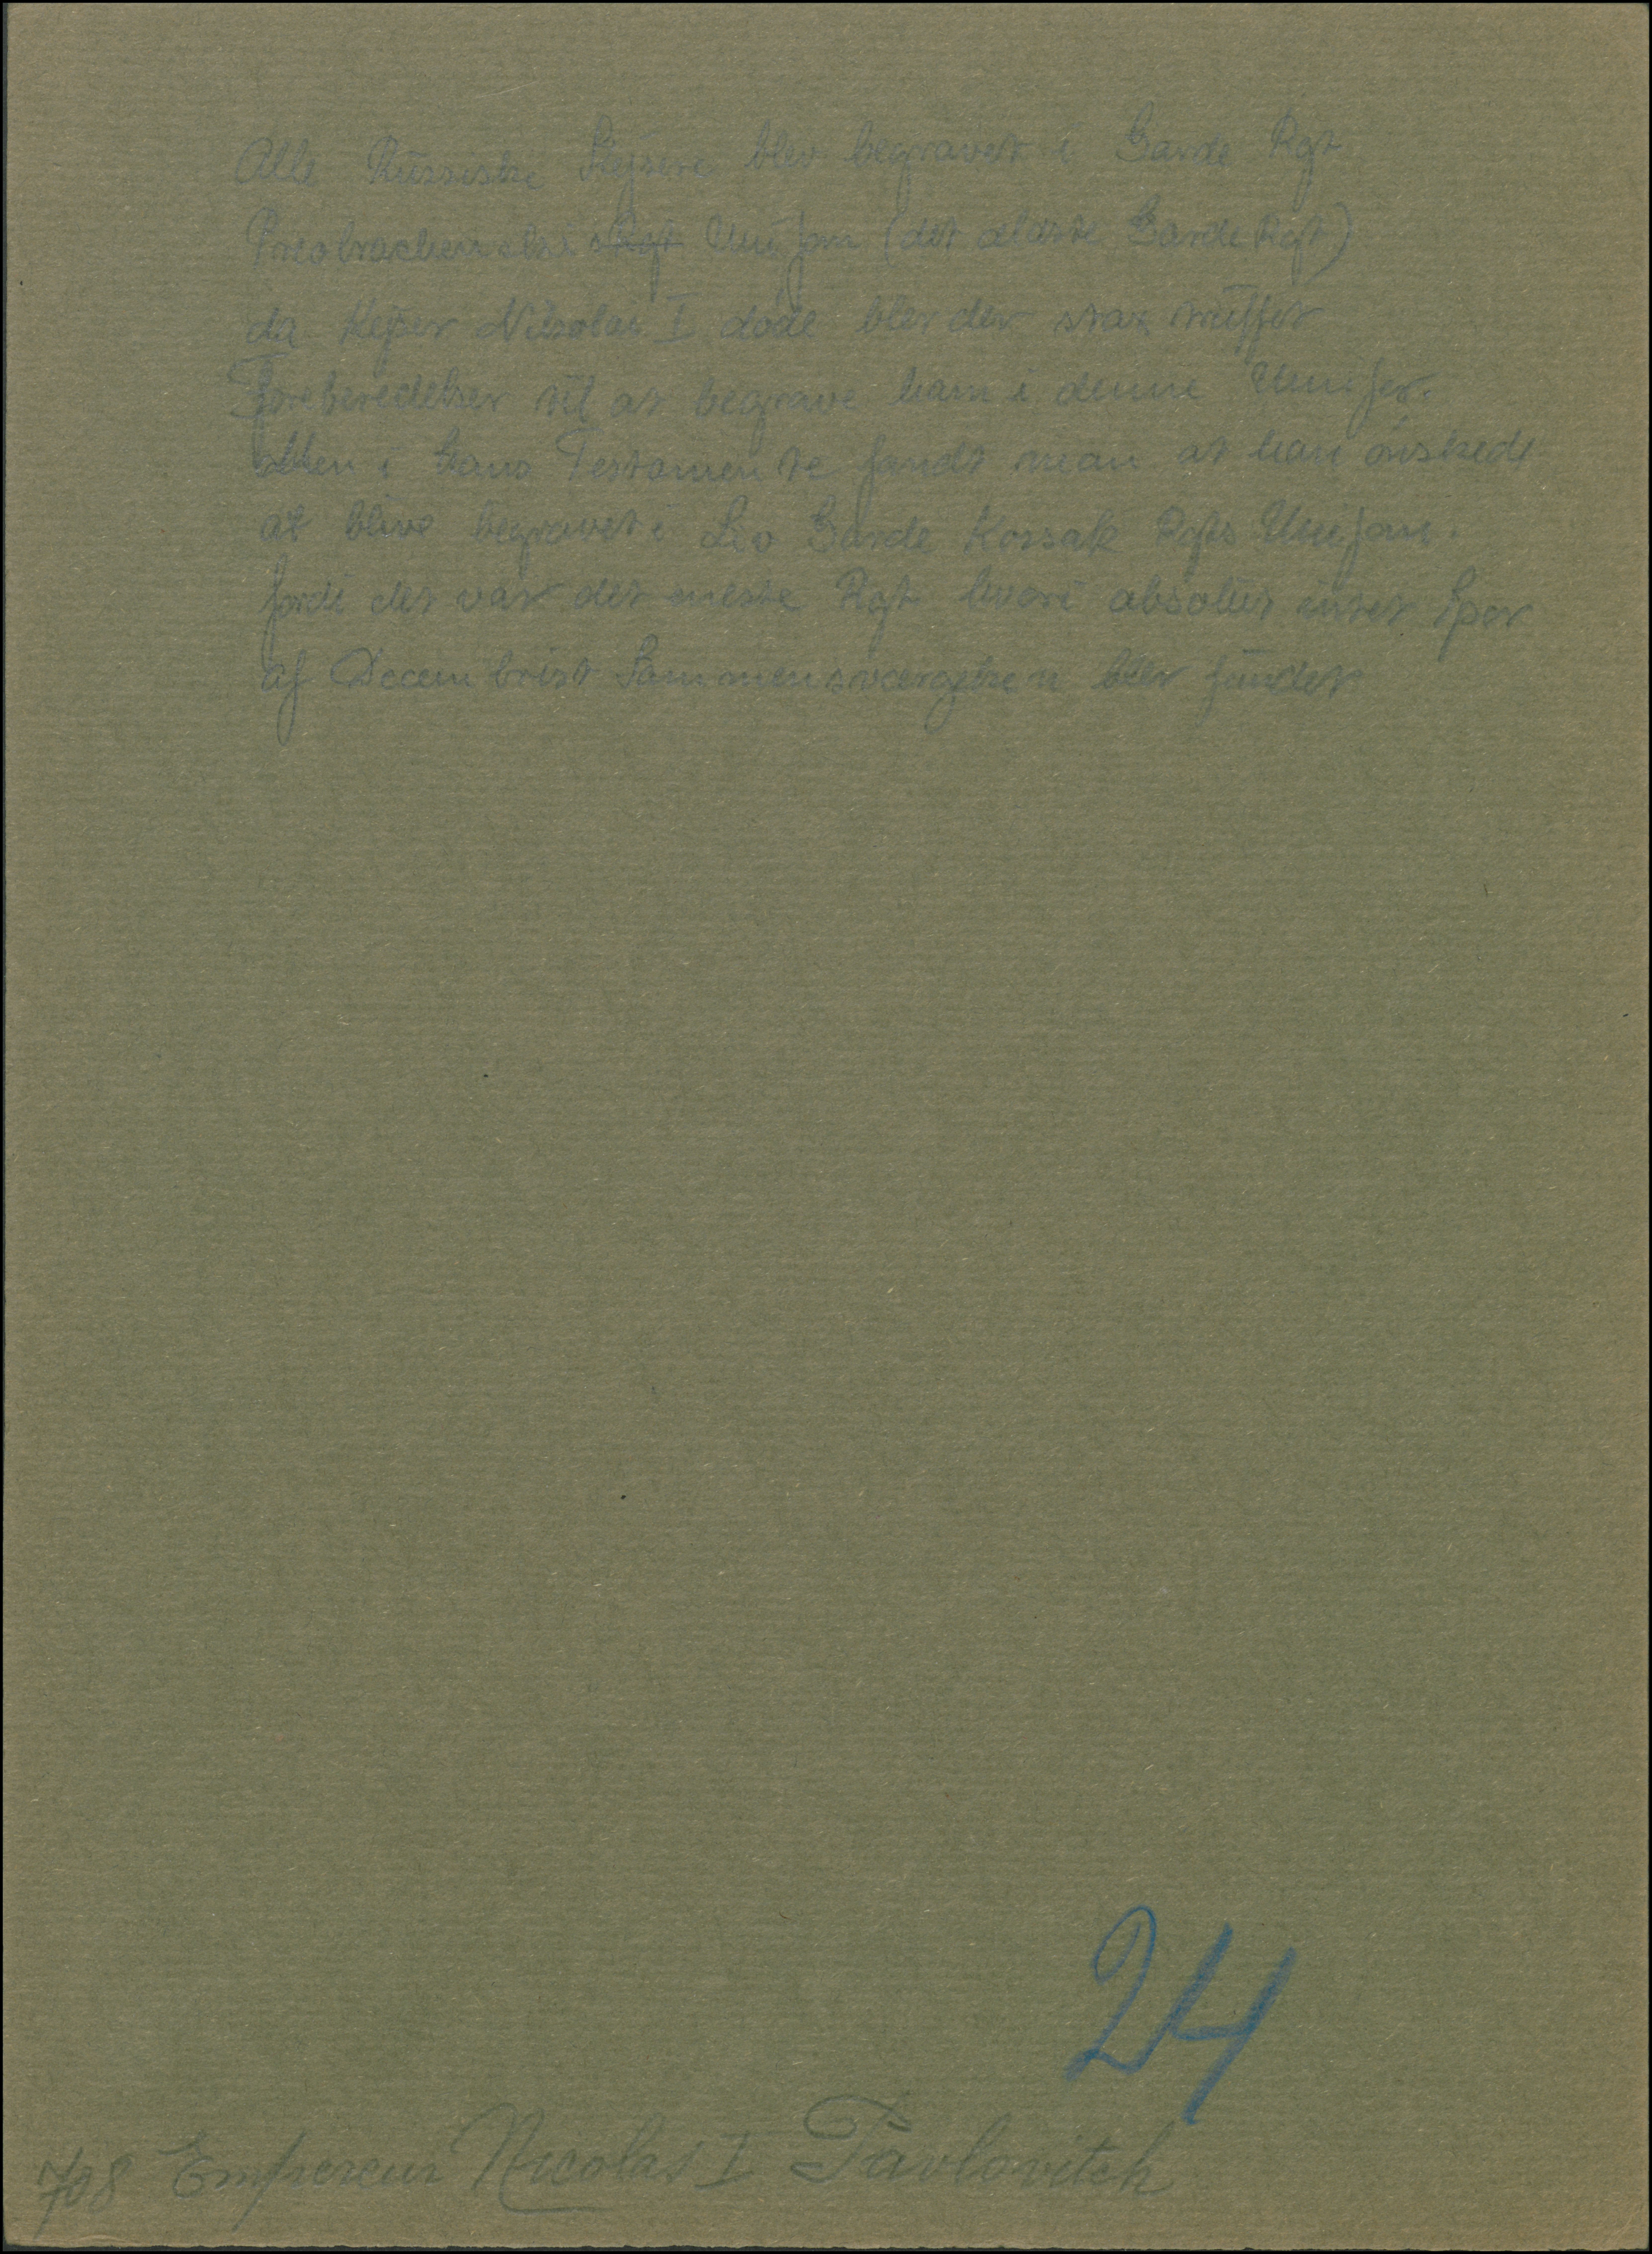 Alle Russiske Kejsere blev begravet i Garde Rgt
Preobrachenskri Rgt Uniform (det ældste Garde Rgt)
da Kejser Nikolai I døde blev der strax truffet
Foreberedelser til at begrave ham i denne Unifor.
Men i Hans Testamente fandt man at han ønskede
at blive begravet i Liv Garde Kossak Rgts Uniform.
fordi det var det eneste Rgt hvori absolut intet Spor
af Decembrist Sammensværgelsen blev fundet
24
708 Empereur Nicolas I Pavlovitch